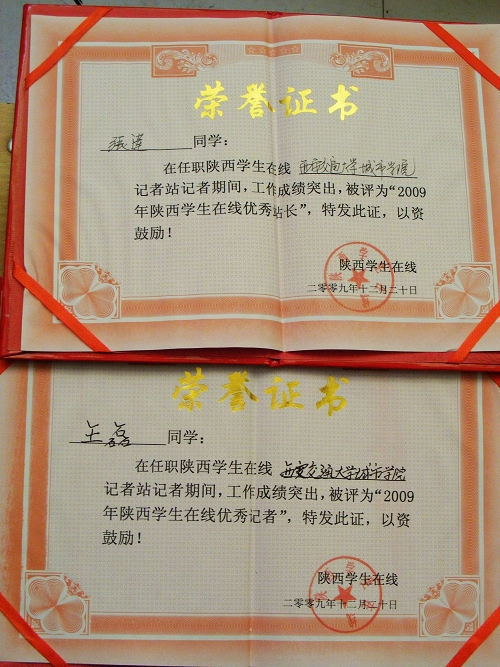 荣誉证书
张 同学：
在任职陕西学生在线 西安交通大学城市学院
记者站记者期间，工作成绩突出，被评为“2009
年陕西学生在线优秀站长”，特发此证，以资
鼓励！
陕西学生在线
二零零九年十二月二十日
荣誉证书
王磊 同学：
在任职陕西学生在线 西安交通大学城市学院
记者站记者期间，工作成绩突出，被评为“2009
年陕西学生在线优秀记者”，特发此证，以资
鼓励！
陕西学生在线
二零零九年十二月二十日